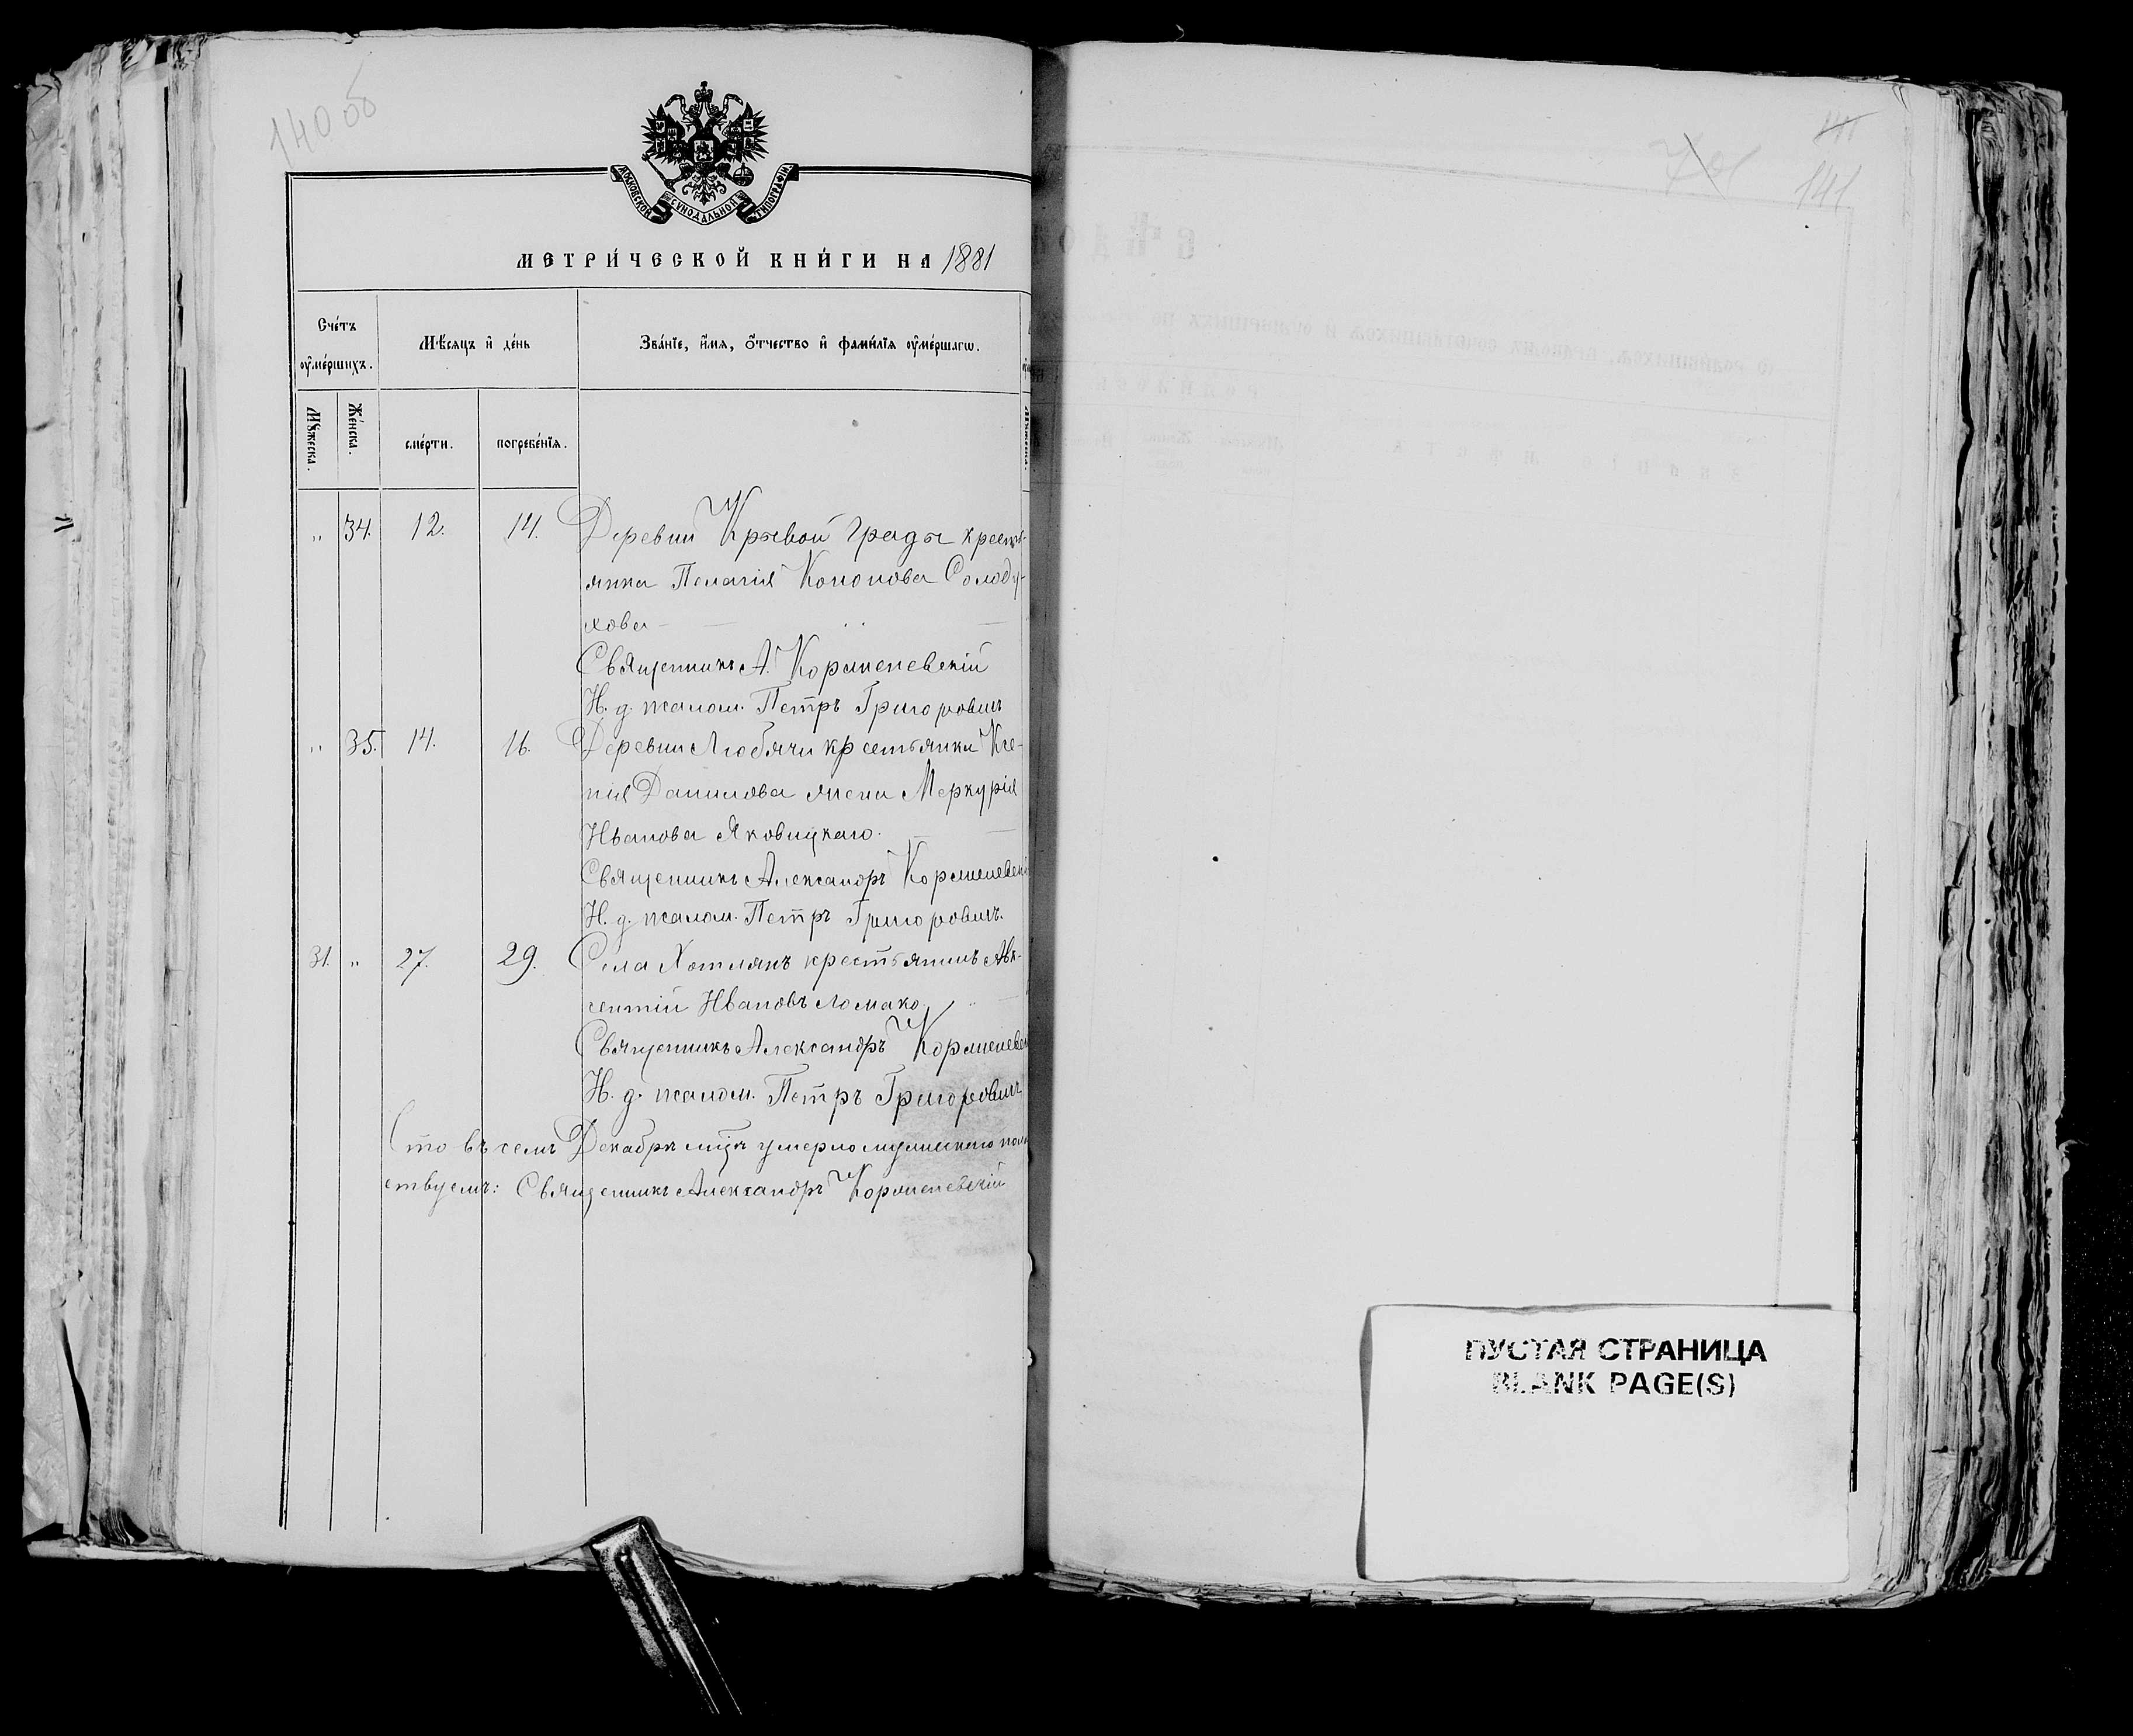 140 об
МОСКОВСКОЙ СѴНОДАЛЬНОЙ ТИПОГРАФІИ
МЕТРИ́ЧЕСКОЙ КНИ́ГИ НА 1881
Сче́тъ оу҆ме́ршихъ.
Мѣ́сяцъ и҆ де́нь
Зва́нїе, и҆́мѧ, ѻ҆́тчество и҆ фами́лїѧ оу҆ме́ршагѡ.
Мꙋ́жеска.
Же́нска.
сме́рти.
погребе́нїѧ.
„ 34. 12. 14. Деревни Кривой Гряды кресть-
янка Пелагія Кононова Солоду-
хова
Священникъ А. Корженевскій
И. д. псалом. Петръ Григоровичъ
„ 35. 14. 16. Деревни Любячи крестьянка Ксе-
нія Данилова жена Меркурія
Иванова Яковицкаго.
Священникъ Александръ Корженевскій
И. д. псалом. Петръ Григоровичъ.
31. „ 27. 29. Села Хотлянъ крестьянинъ Авк-
сентій Ивановъ Ломако
Священникъ Александръ Корженевск
И. д. псалом. Петръ Григоровичъ
Что въ семъ Декабрѣ мцѣ умерло мужескаго пола
ствуемъ: Священникъ Александръ Корженевскій
141
ПУСТАЯ СТРАНИЦА
BLANK PAGE(S)